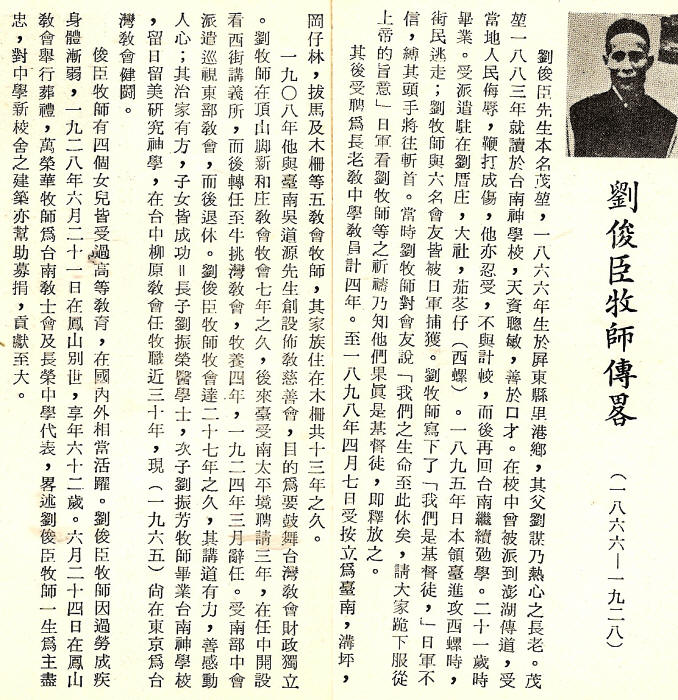 劉俊臣牧師傳畧
（一八六六—一九二八）
劉俊臣先生本名茂堃，一八六六年生於屏東縣里港鄉，其父劉謀乃熱心之長老。茂
堃一八八三年就讀於台南神學校，天資聰敏，善於口才。在校中曾被派到澎湖傳道，受
當地人民侮辱，鞭打成傷，他亦忍受，不與計較，而後再回台南繼續勉學。二十一歲時
畢業。受派遣駐在劉厝庄，大社，茄苳仔（西螺）。一八九五年日本領臺進攻西螺時，
街民逃走；劉牧師與六名會友皆被日軍捕獲。劉牧師寫下了「我們是基督徒，」日軍不
信，縛其頭手將往斬首。當時劉牧師對會友說「我們之生命至此休矣，請大家跪下服從
上帝的旨意」日軍看劉牧師等之祈禱乃知他們果眞是基督徒，即釋放之。
其後受聘爲長老教中學教員計四年。至一八九八年四月七日受按立爲臺南，溝坪，
岡仔林，拔馬及木柵等五敎會牧師，其家族住在木柵共十三年之久。
一九〇八年他與臺南吳道源先生創設佈教慈善會，目的爲要鼓舞台灣敎會財政獨立
。劉牧師在頂山脚新和庄敎會牧會七年之久，後來臺受南太平境聘請三年，在任中開設
看西街講義所，而後轉任至牛挑灣敎會，牧養四年，一九二四年三月辭任。受南部中會
派遣巡視東部敎會，而後退休。劉俊臣牧師牧會達二十七年之久，其講道有力，善感動
人心；其治家有方，子女皆成功＝長子劉振榮醫學士，次子劉振芳牧師畢業台南神學校
，留日留美研究神學，在台中柳原敎會任牧職近三十年，現（一九六五）尙在東京爲台
灣敎會健鬪。
俊臣牧師有四個女兒皆受過高等敎育，在國內外相當活躍。劉俊臣牧師因過勞成疾
身體漸弱，一九二八年六月二十一日在鳳山別世，享年六十二歲。六月二十四日在鳳山
敎會舉行葬禮，萬榮華牧師爲台南敎士會及長榮中學代表，畧述劉俊臣牧師一生爲主盡
忠，對中學新校舍之建築亦幫助募捐，貢獻至大。